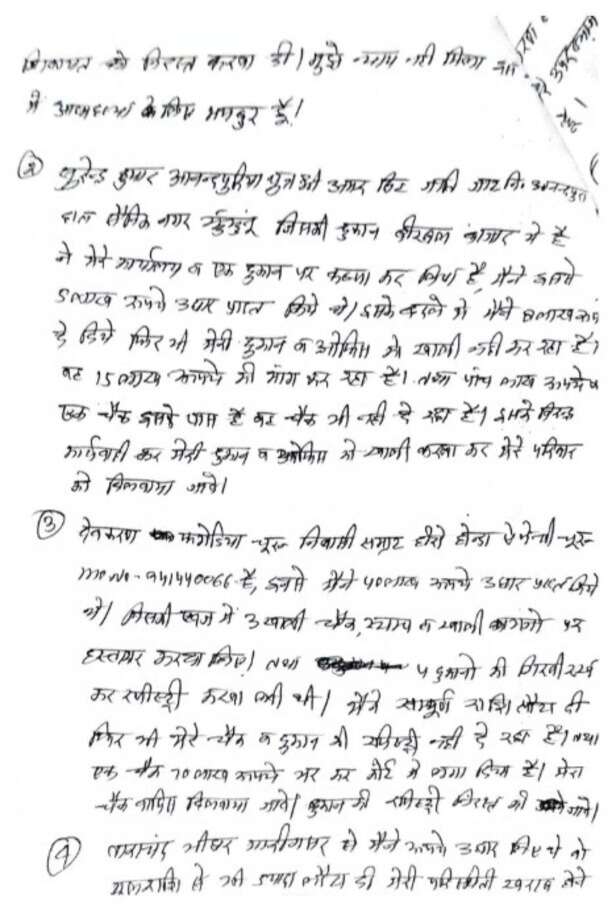 शिकायत को निरस्त करवा दी। मुझे न्याय नहीं मिला
मैं आत्महत्या के लिए मजबूर हूँ।
② सुरेन्द्र कुमार आनन्दपुरिया पुत्र श्री अमर सिंह जाति जाट नि. आनन्दपुरा
हाल सैनिक नगर झुंझुनूं जिसकी दुकान बीरबल बाजार में है
ने मेरे कार्यालय व एक दुकान पर कब्जा कर लिया है, मैंने इससे
5 लाख रूपये उधार प्राप्त किये थे। इसके बदले में मैंने 8 लाख रूपये
दे दिये फिर भी मेरी दुकान व ऑफिस को खाली नहीं कर रहा है।
वह 15 लाख रूपये की मांग कर रहा है। तथा पांच लाख रूपये का
एक चैक इसके पास है वह चैक भी नहीं दे रहा है। इसके विरुद्ध
कार्यवाही कर मेरी दुकान व ऑफिस को खाली करवा कर मेरे परिवार
को दिलवाया जावे।
③ देवकरण चूरू निवासी सम्राट हीरो होन्डा ऐजेन्सी चूरू
mo no - 941440066 है, इनसे मैंने 40 लाख रूपये उधार प्राप्त किये
थे। जिसकी एवज में 3 खाली चैक, स्टाम्प व खाली कागजों पर
हस्ताक्षर करवा लिए। तथा 4 दुकानों की गिरवी रख
कर रजिस्ट्री करवा ली थी। मैंने सम्पूर्ण राशि लौटा दी
फिर भी मेरे चैक व दुकान की रजिस्ट्री नहीं दे रहा है। तथा
एक चैक 70 लाख रूपये भर कर कोर्ट में लगा दिया है। मेरा
चैक वापिस दिलवाया जावे। दुकान की रजिस्ट्री निरस्त की जावे।
④ ताराचंद से मैंने रूपये उधार लिए थे जो
मूलराशि से भी ज्यादा लौटा दी मेरी परिस्थिति खराब होने